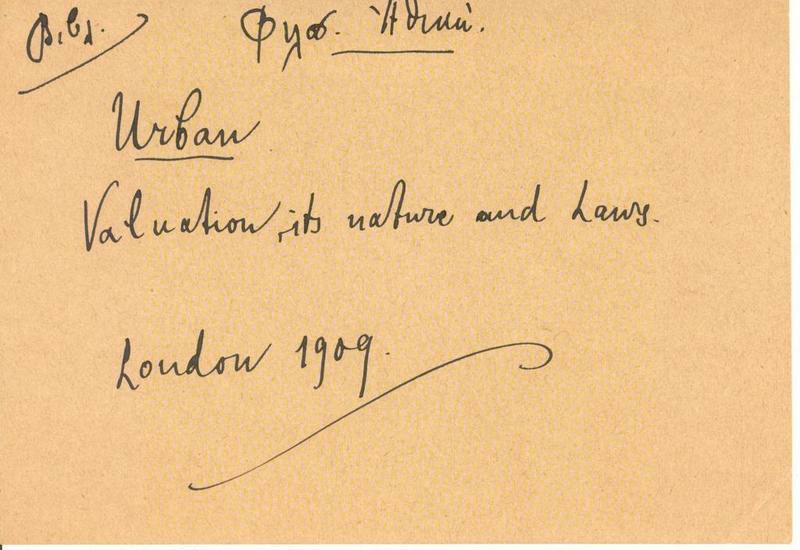 Βιβλ. Φυσ. Ἠθική.
Urban
Valuation, its nature and Laws.
London 1909.